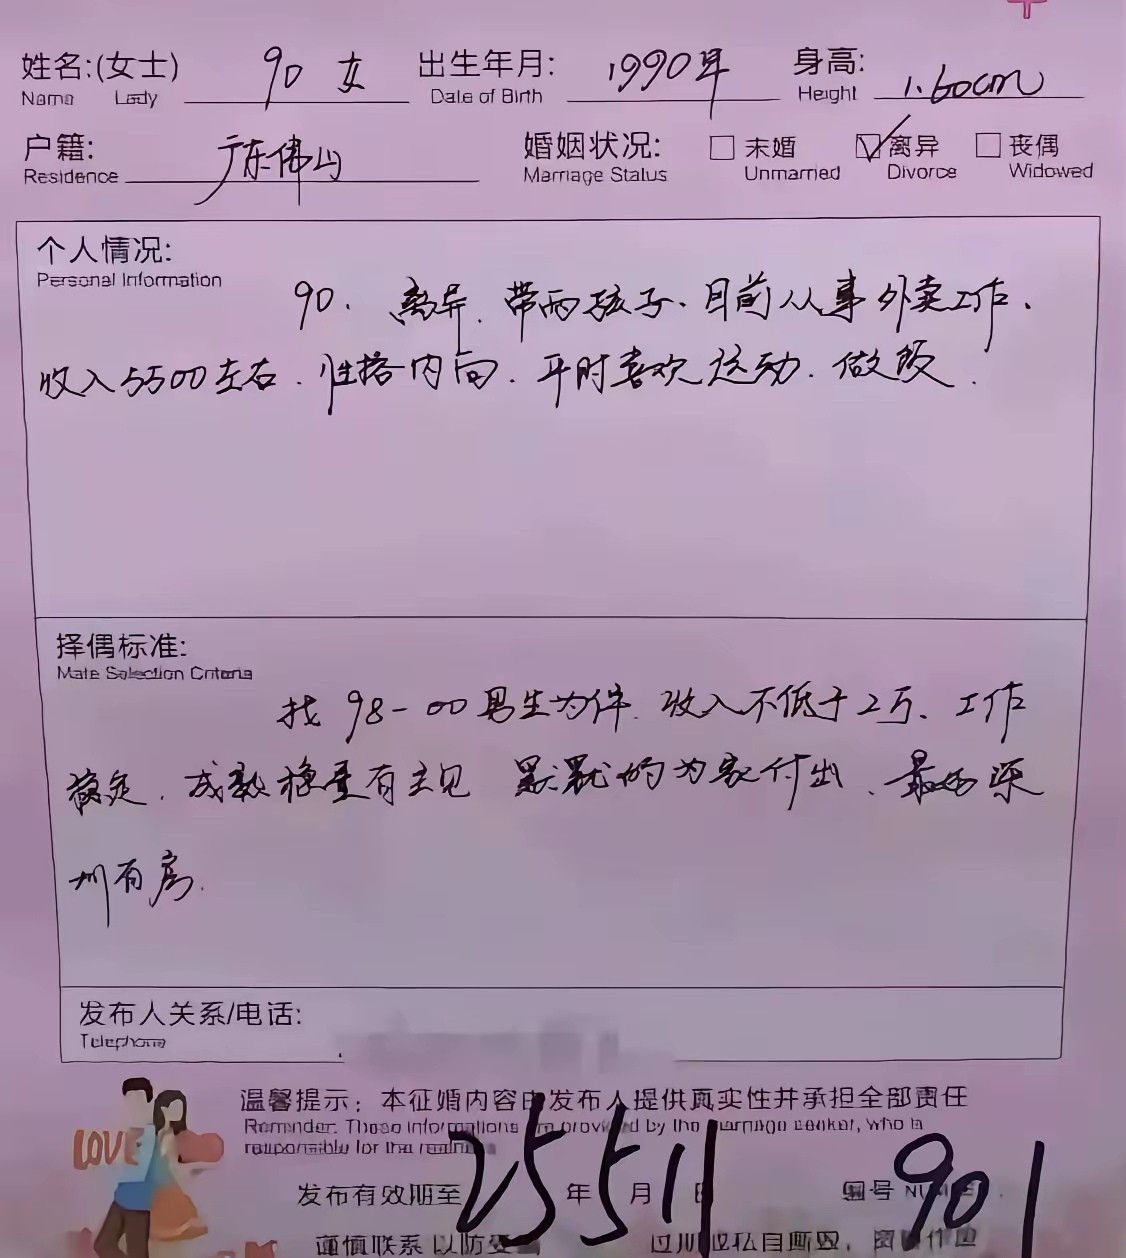 姓名:(女士) 90 女 出生年月: 1990年 身高: 1.60cm
Name Lady Date of Birth Height
户籍: 广东佛山 婚姻状况: 未婚 离异 丧偶
Residence Marriage Status Unmarried Divorce Widowed
个人情况:
Personal Information
90. 离异. 带两孩子. 目前从事外卖工作.
收入5500左右. 性格内向. 平时喜欢运动. 做饭.
择偶标准:
Mate Selection Criteria
找 98-00男生为伴. 收入不低于2万、工作
稳定. 成熟稳重有主见 默默的为家付出、最好深
圳有房.
发布人关系/电话:
Telephone
温馨提示: 本征婚内容由发布人提供真实性并承担全部责任
Reminder: These informations are provided by the marriage seeker, who is
responsible for the
发布有效期至 25 年 5 月 11 日 编号 901
谨慎联系 以防受